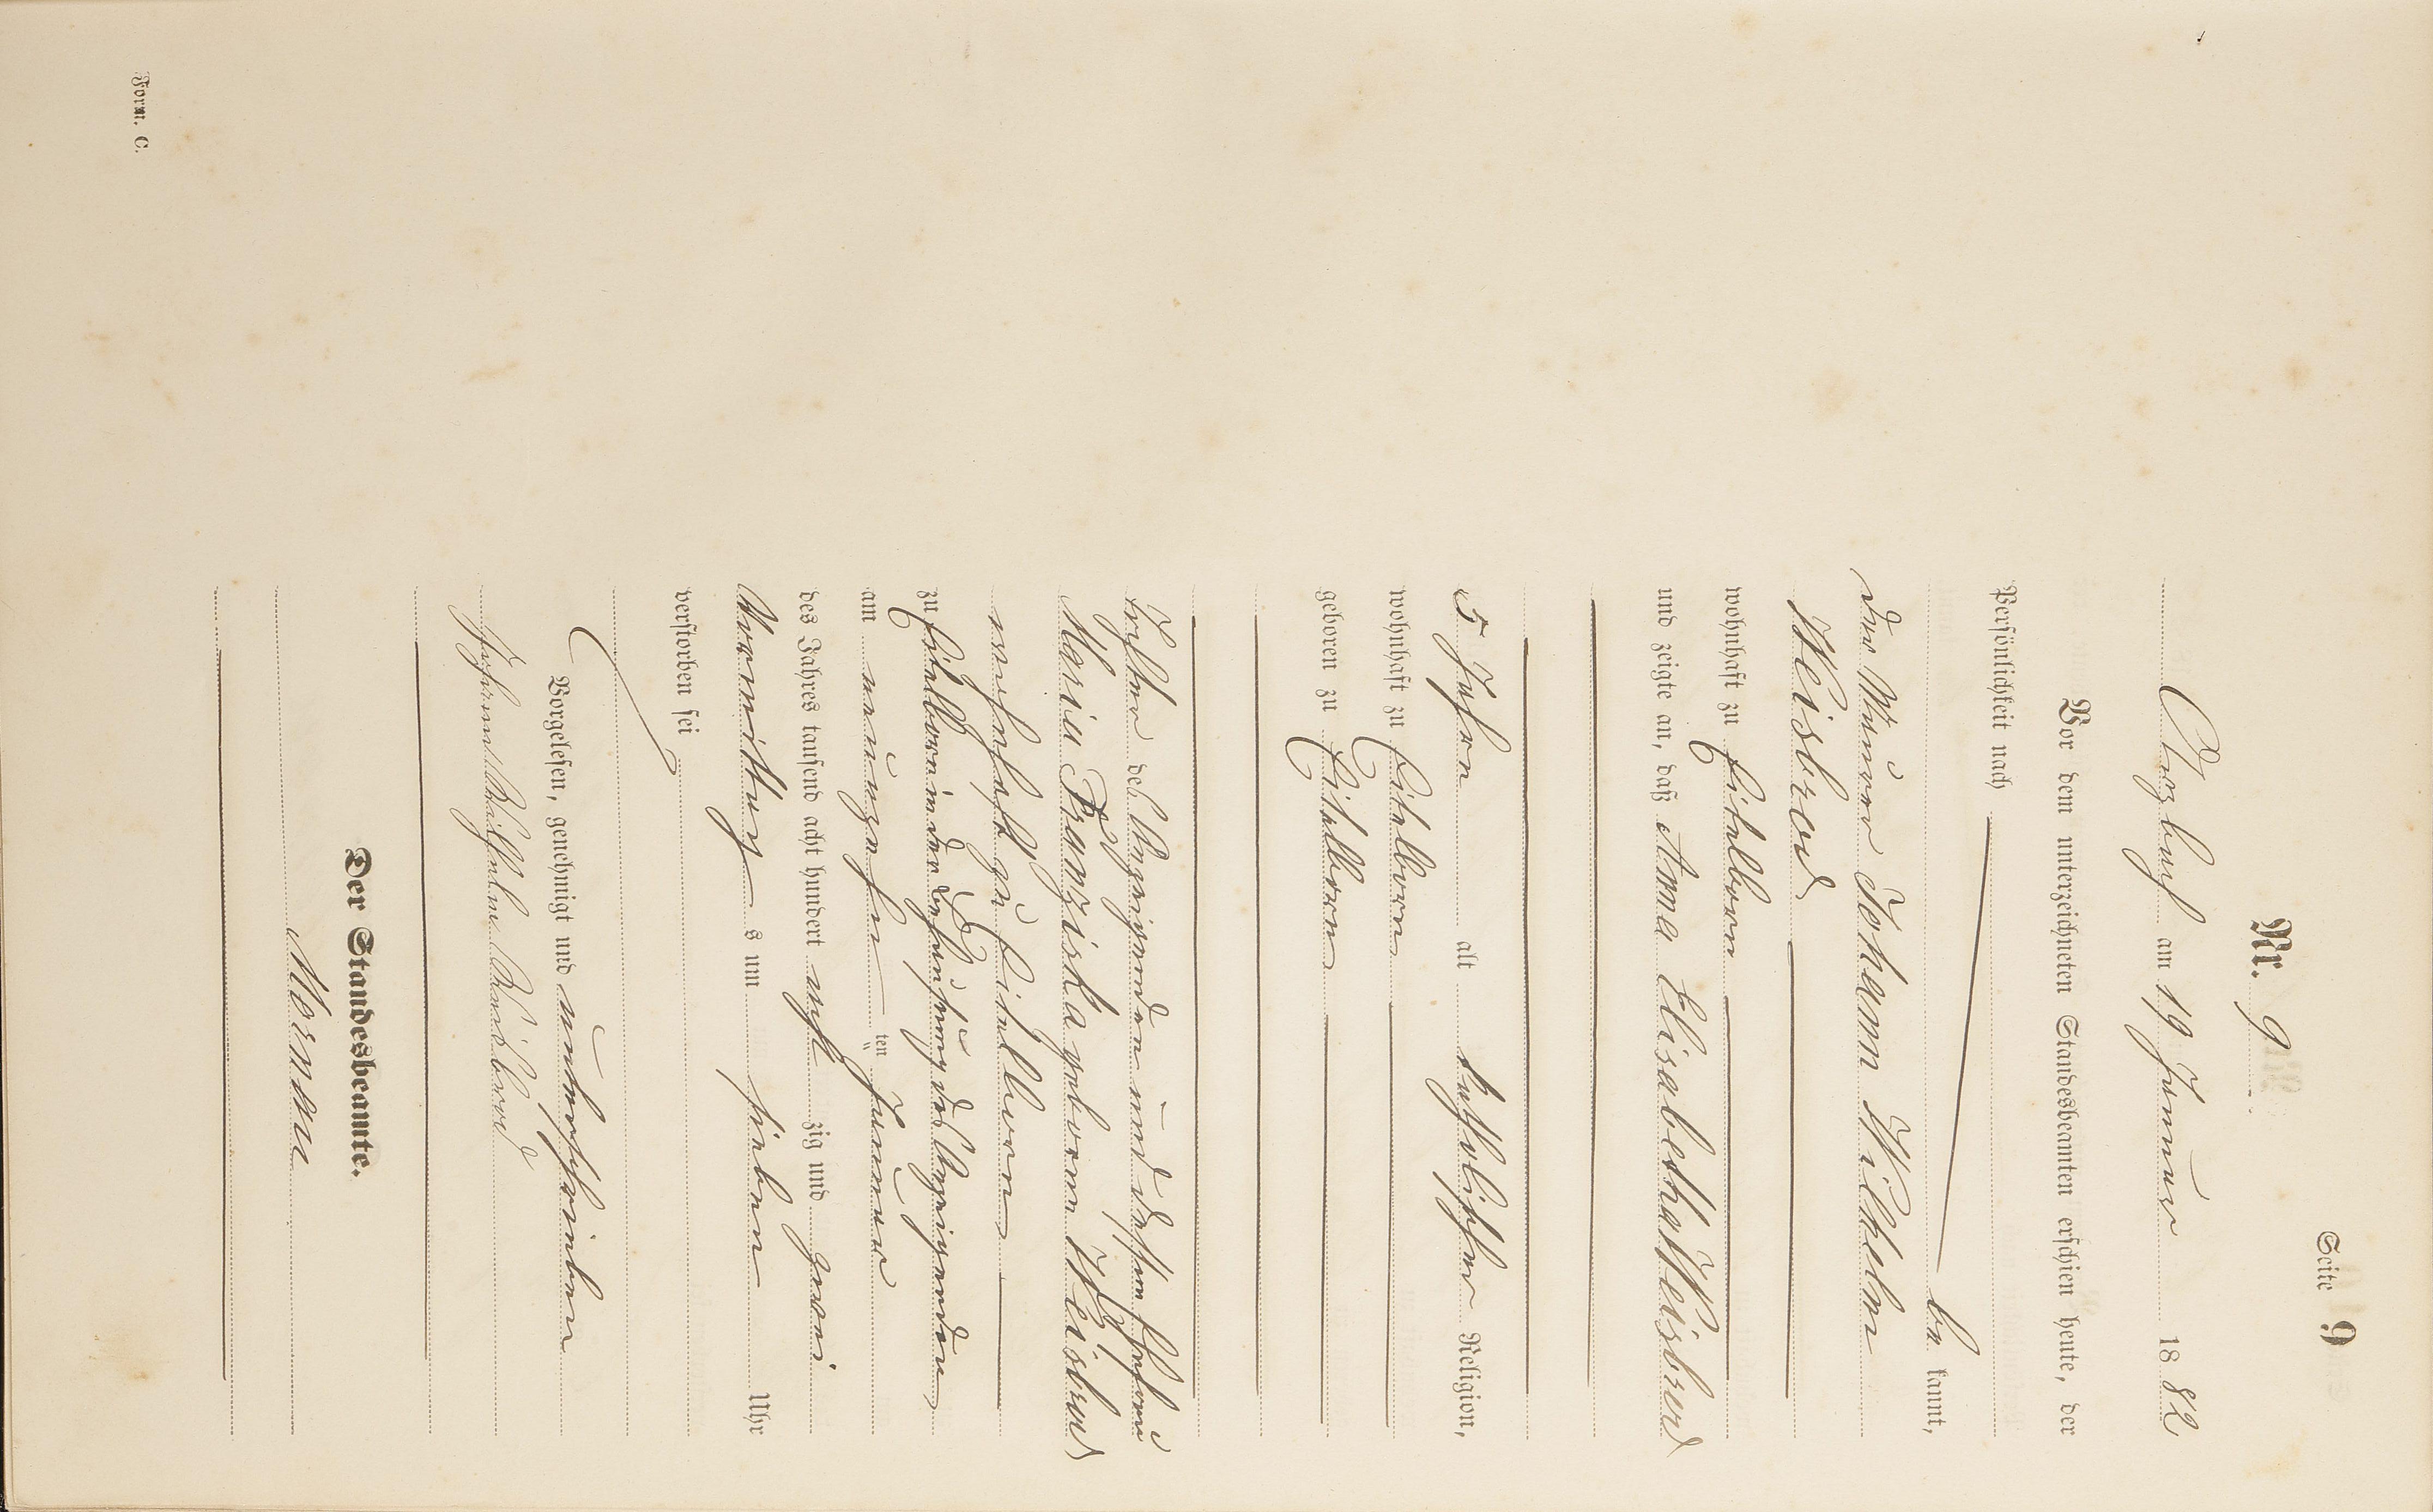 Seite 9
Nr. 9
Arzbach am 19 Januar 1882
Vor dem unterzeichneten Standesbeamten erschien heute, der
Persönlichkeit nach
be kannt,
der Maurer Johann Wilhelm
Weisbrod
wohnhaft zu Eitelborn
und zeigte an, daß Anna Elisabetha Weisbrod
5 Jahre alt katholischer Religion,
wohnhaft zu Eitelborn
geboren zu Eitelborn
Tochter des Anzeigenden und dessen Ehefrau
Maria Franziska geborne Weisbrod
wohnhaft zu Eitelborn
zu Eitelborn in der Behausung des Anzeigenden
am neunzehn ten Januar
des Jahres tausend acht hundert acht zig und zwei
Vormittag s um sieben Uhr
verstorben sei
Vorgelesen, genehmigt und unterschrieben
Johann Wilhelm Weisbrod
Der Standesbeamte.
Form. C.